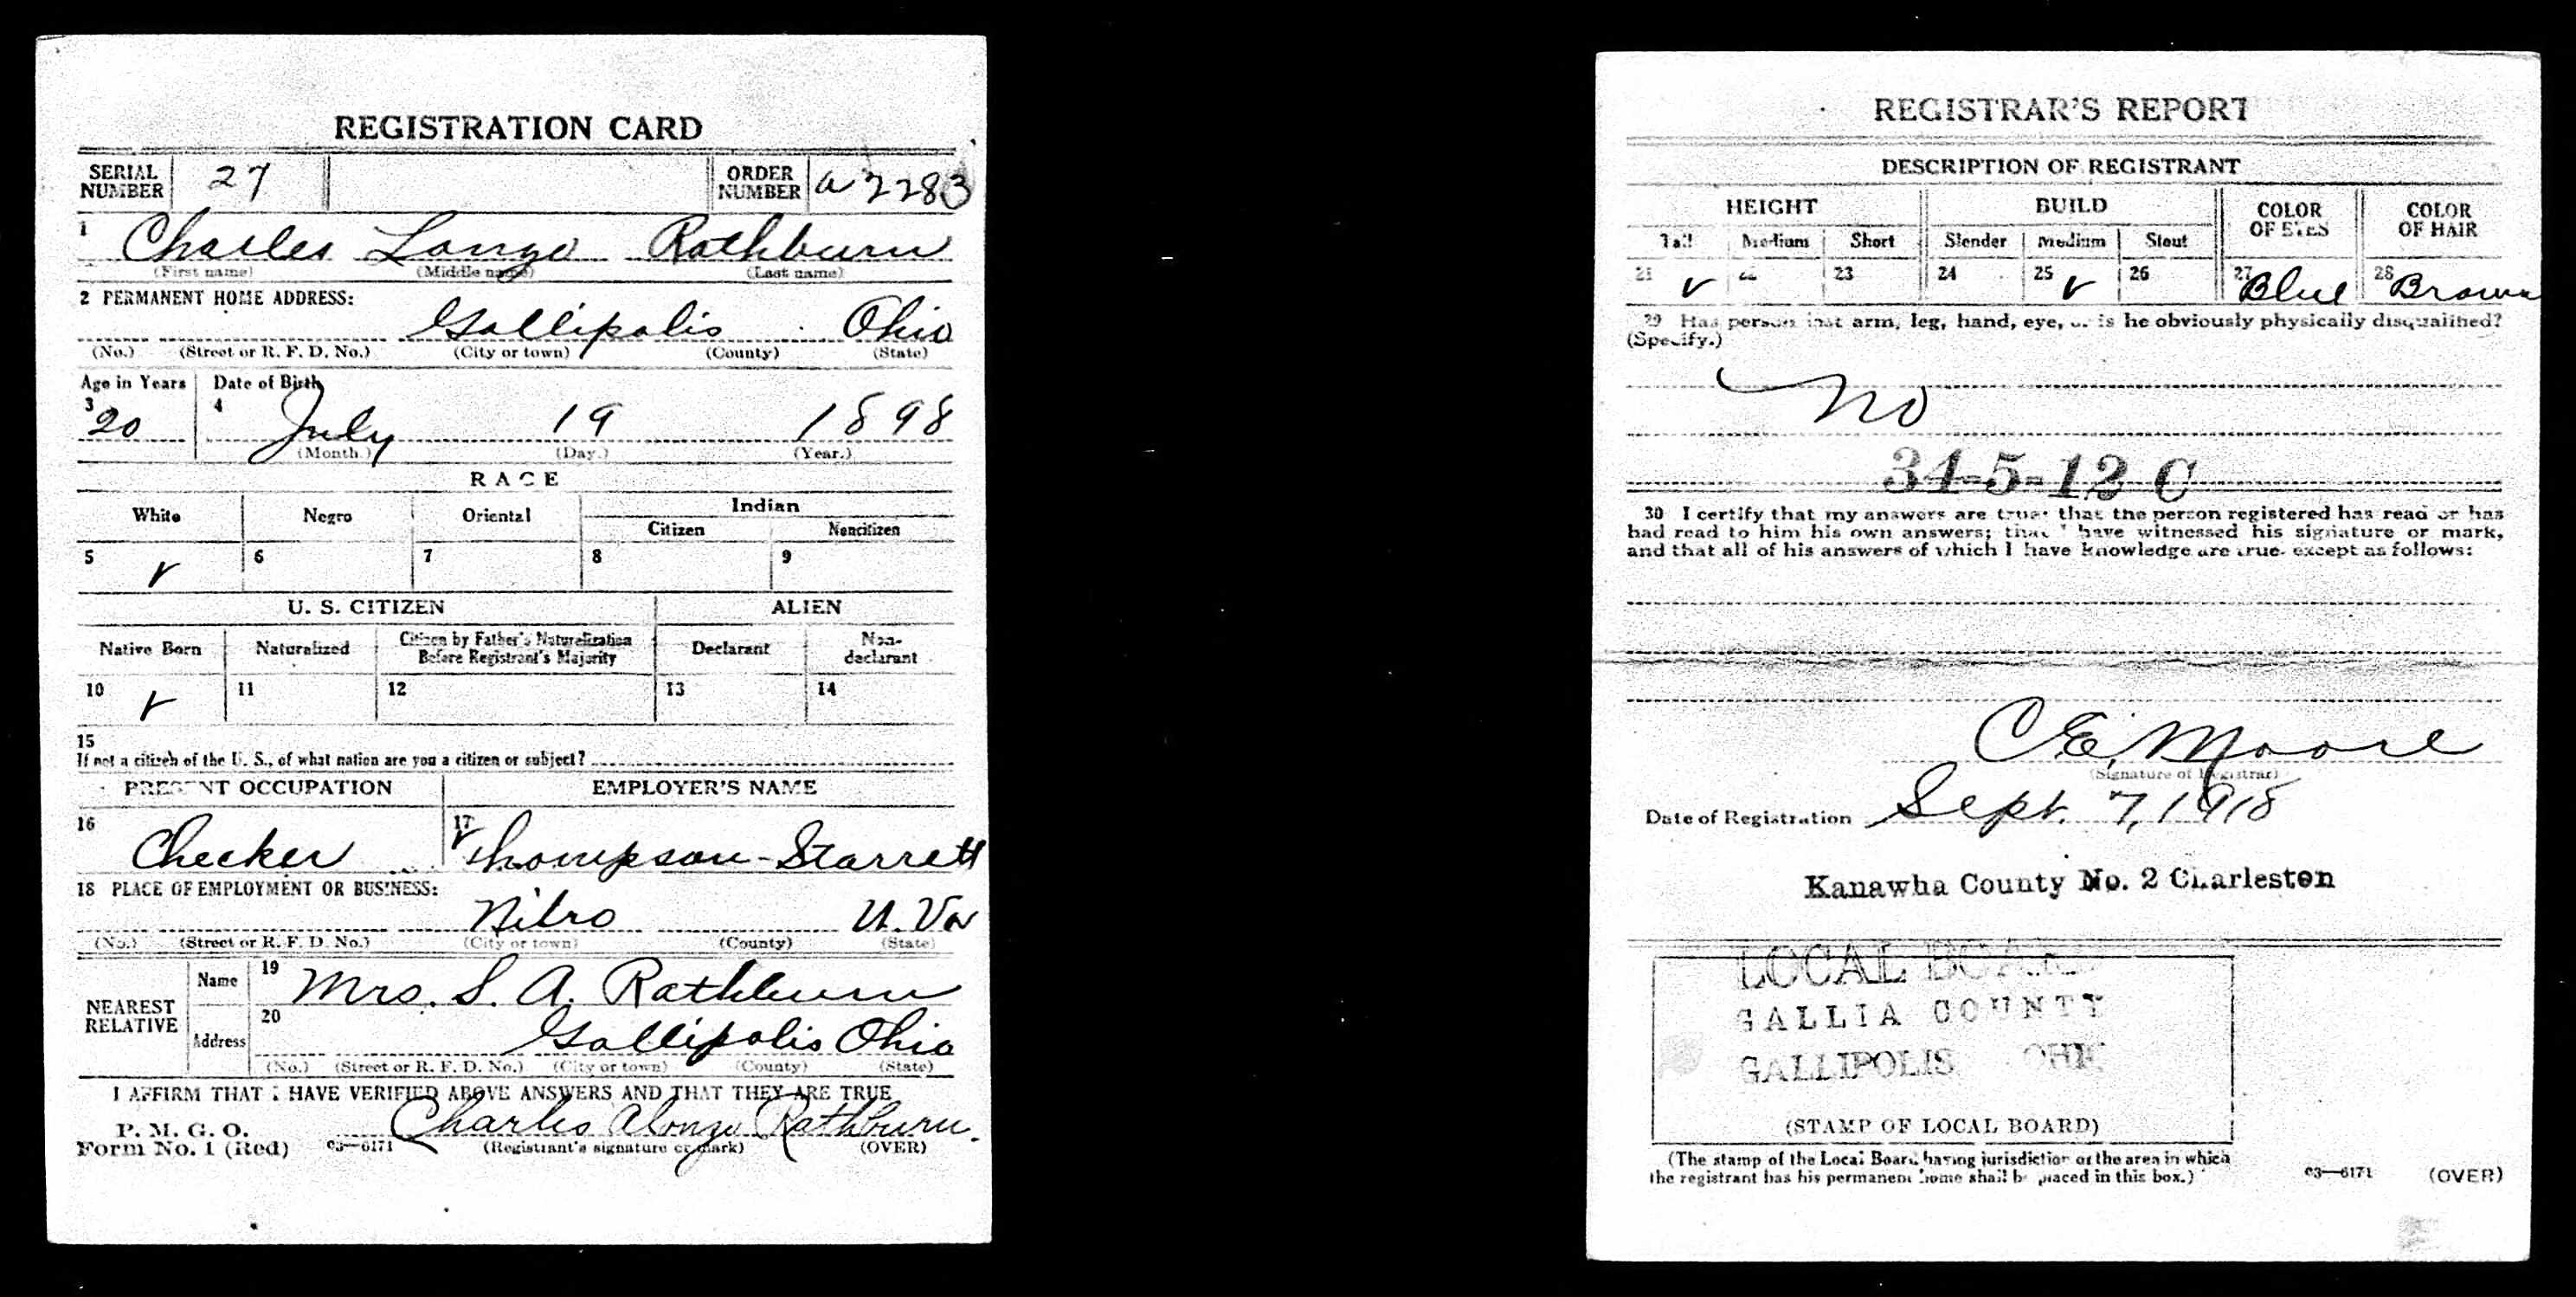 REGISTRATION CARD
SERIAL NUMBER 27 ORDER NUMBER a 2283
1 Charles Lonzo Rathburn
(First name) (Middle name) (Last name)
2 PERMANENT HOME ADDRESS:
Gallipolis Ohio
(No.) (Street or R. F. D. No.) (City or town) (County) (State)
Age in Years Date of Birth
3 20 4 July 19 1898
(Month.) (Day.) (Year.)
RACE
White Negro Oriental Indian
Citizen Noncitizen
5 6 7 8 9
U. S. CITIZEN ALIEN
Native Born Naturalized Citizen by Father's Naturalization Before Registrant's Majority Declarant Non-declarant
10 11 12 13 14
15
If not a citizen of the U. S., of what nation are you a citizen or subject?
PRESENT OCCUPATION EMPLOYER'S NAME
16 Checker 17 Thompson-Starrett
18 PLACE OF EMPLOYMENT OR BUSINESS:
Nitro W. Va
(No.) (Street or R. F. D. No.) (City or town) (County) (State)
NEAREST RELATIVE
Name 19 Mrs. S. A. Rathburn
Address 20 Gallipolis Ohio
(No.) (Street or R. F. D. No.) (City or town) (County) (State)
I AFFIRM THAT I HAVE VERIFIED ABOVE ANSWERS AND THAT THEY ARE TRUE
P. M. G. O.
Form No. 1 (Red) 03—6171 Charles Alonzo Rathburn.
(Registrant's signature or mark) (OVER)
REGISTRAR'S REPORT
DESCRIPTION OF REGISTRANT
HEIGHT BUILD COLOR OF EYES COLOR OF HAIR
Tall Medium Short Slender Medium Stout
21 22 23 24 25 26 27 Blue 28 Brown
29 Has person lost arm, leg, hand, eye, or is he obviously physically disqualified?
(Specify.)
No
34-5-12 C
30 I certify that my answers are true; that the person registered has read or has
had read to him his own answers; that I have witnessed his signature or mark,
and that all of his answers of which I have knowledge are true, except as follows:
C. E. Moore
(Signature of Registrar)
Date of Registration Sept. 7, 1918
Kanawha County No. 2 Charleston
LOCAL BOARD
GALLIA COUNTY
GALLIPOLIS OHIO
(STAMP OF LOCAL BOARD)
(The stamp of the Local Board having jurisdiction of the area in which
the registrant has his permanent home shall be placed in this box.)
03—6171 (OVER)